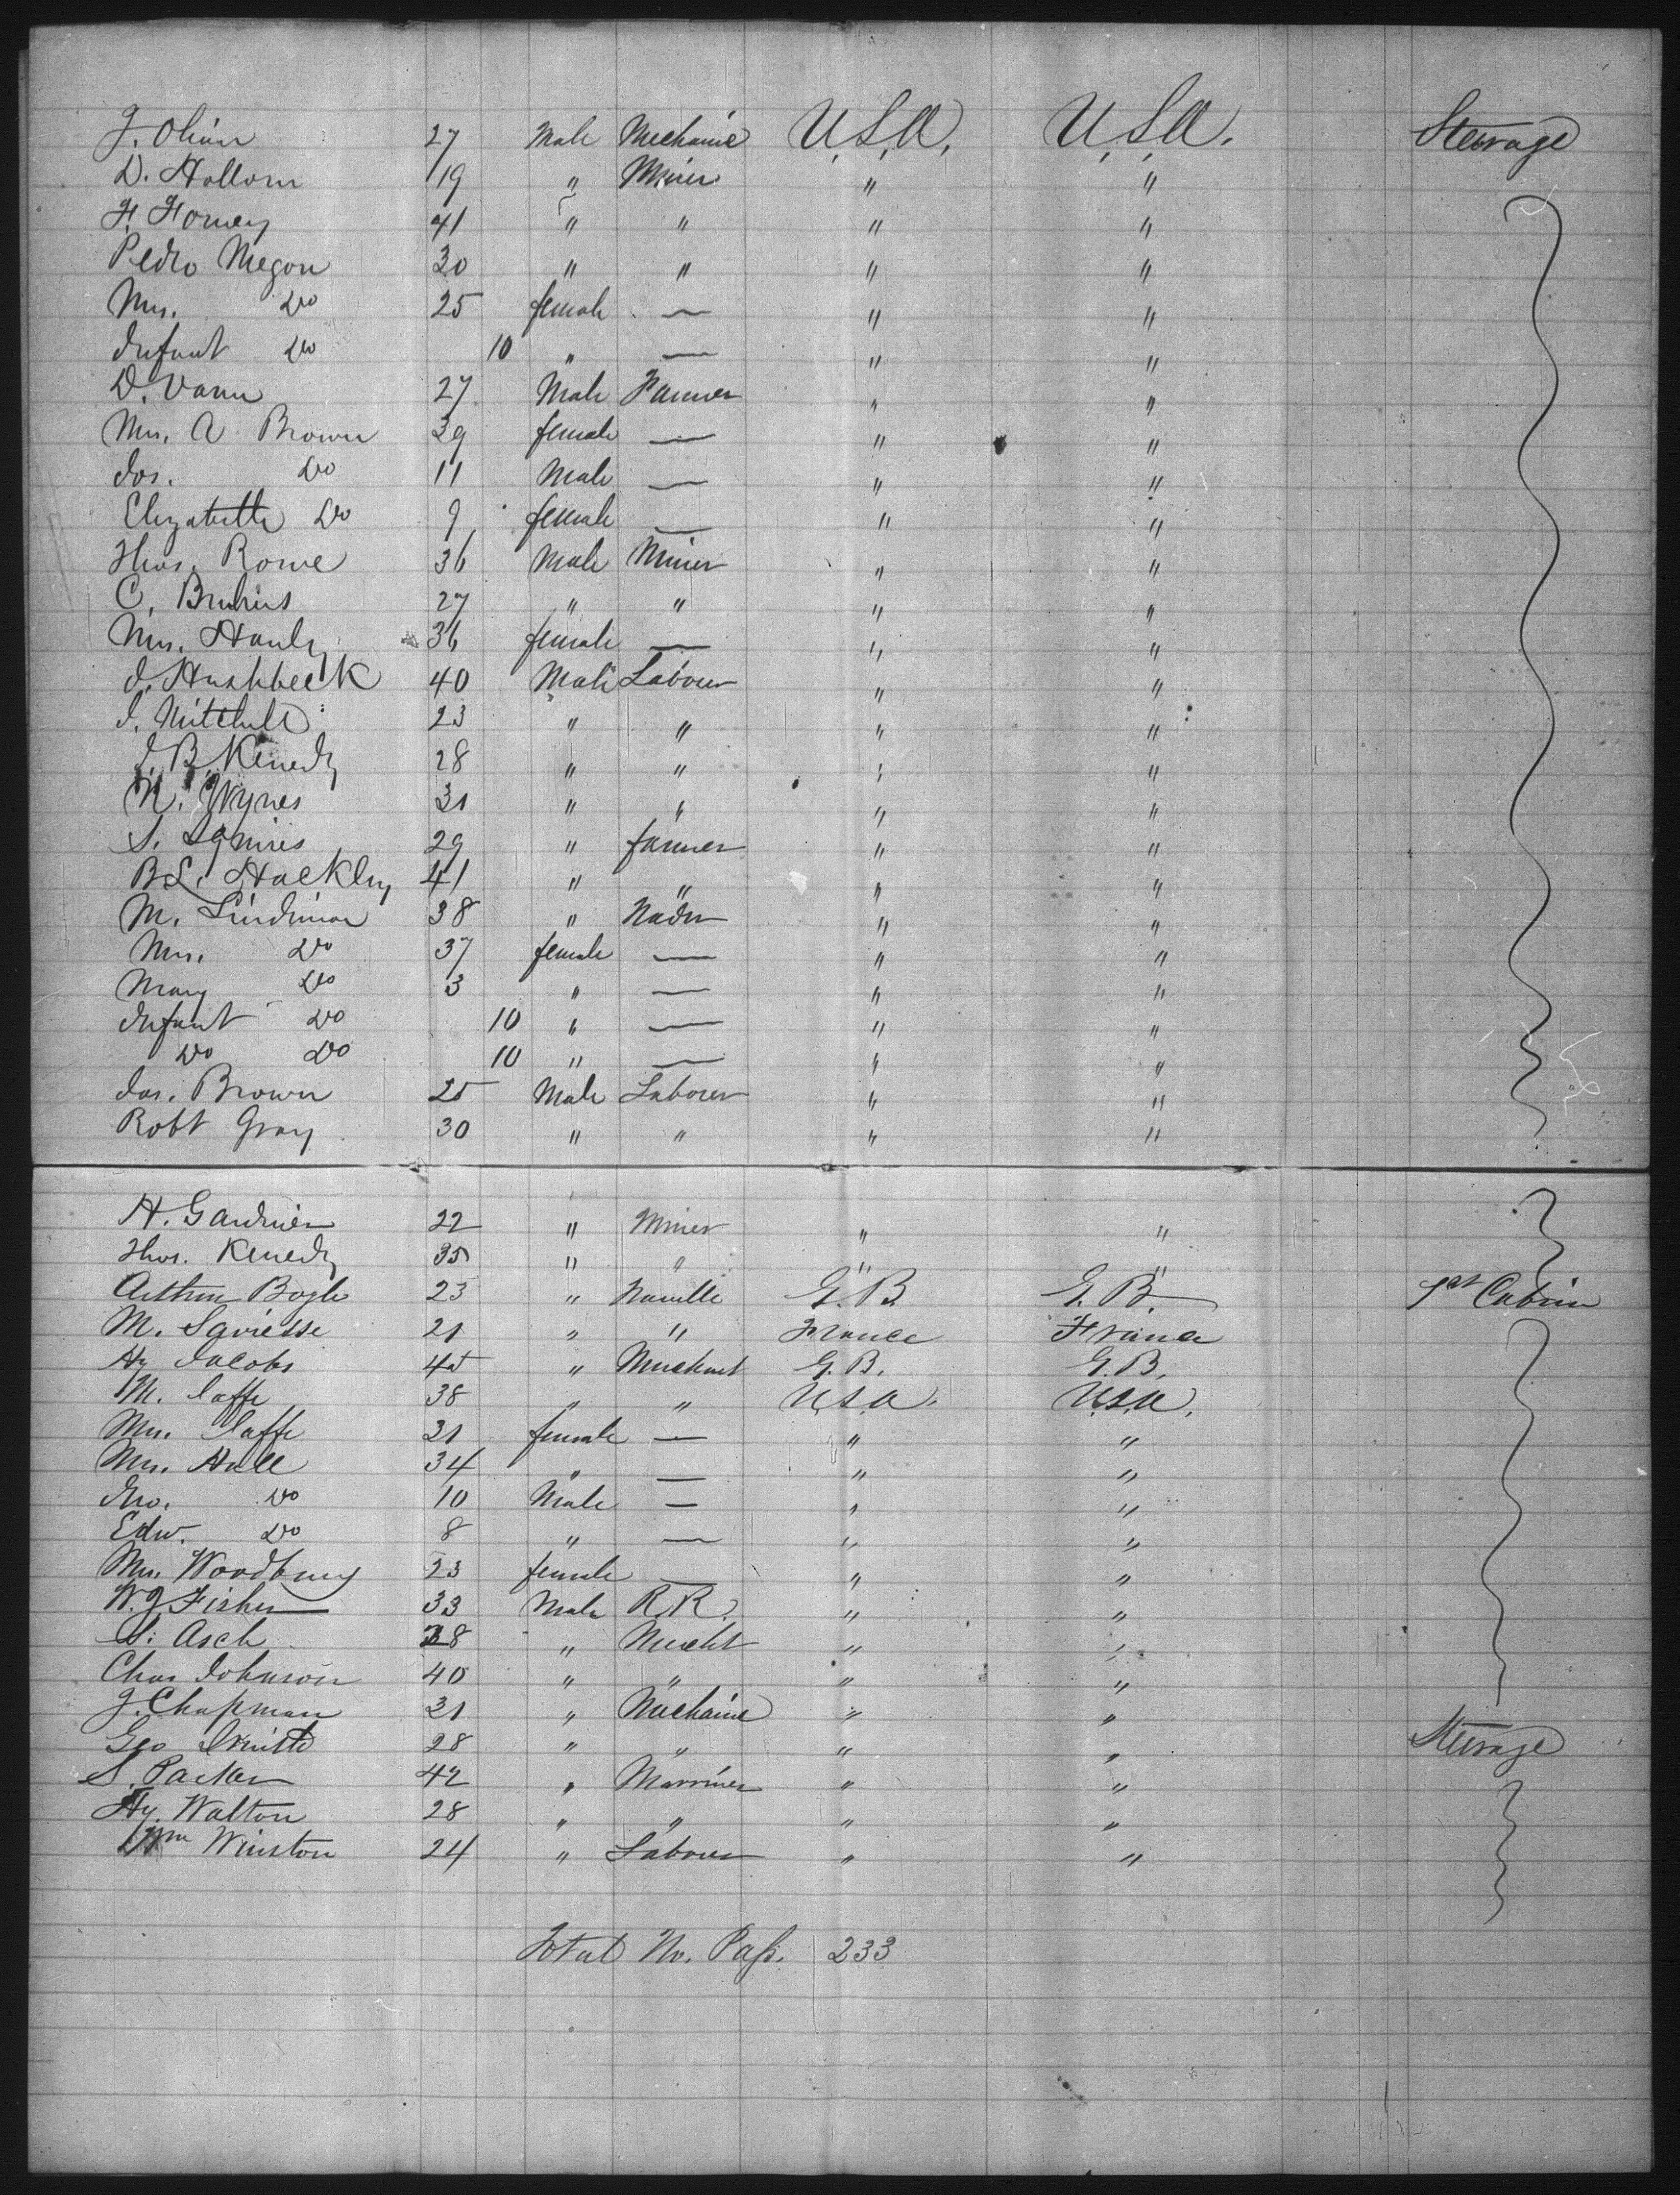 J. Oliver 27 Male Mechanic U.S.A. U.S.A. Steerage
D. Hollorn 19 " Miner " "
F. Forney 41 " " " "
Pedro Megon 30 " " " "
Mrs. Do 25 female — " "
Infant Do 10 " — " "
D. Vann 27 Male Farmer " "
Mrs. A Brown 39 female — " "
Jos. Do 11 Male — " "
Elizabeth Do 9 female — " "
Thos. Rowe 36 Male Miner " "
C. 27 " " " "
Mrs. Hanly 36 female — " "
J. Hushbeck 40 Male Laborer " "
J. Mitchell 23 " " " "
J. B. Kenedy 28 " " " "
N. Wynes 31 " " " "
S. Squires 29 " farmer " "
B.S. Hackley 41 " " " "
M. Lindiman 38 " " "
Mrs. Do 37 female — " "
Mary Do 3 " — " "
Infant Do 10 " — " "
Do Do 10 " — " "
Jas. Brown 25 Male Laborer " "
Robt Gray 30 " " " "
H. Gardnier 22 " Miner " "
Thos. Kenedy 35 " " " "
Arthur Bogle 23 " G. B. G. B. 1st Cabin
M. 21 " " France France
Hy Jacobs 45 " Merchant G. B. G. B.
M. Jaffe 38 " " U.S.A. U.S.A.
Mrs. Jaffe 31 female — " "
Mrs. Hall 34 " — " "
Jno. Do 10 Male — " "
Edw. Do 8 " — " "
Mrs. Woodbury 23 female — " "
W. J Fisher 33 Male R.R. " "
S. Asch 38 " Mercht " "
Chas Johnson 40 " " " "
J. Chapman 31 " Mechanic " "
Geo 28 " " " " Steerage
S. Parker 42 " Marriner " "
Hy. Walton 28 " " " "
Wm Winston 24 " Laborer " "
Total No. Pass. 233